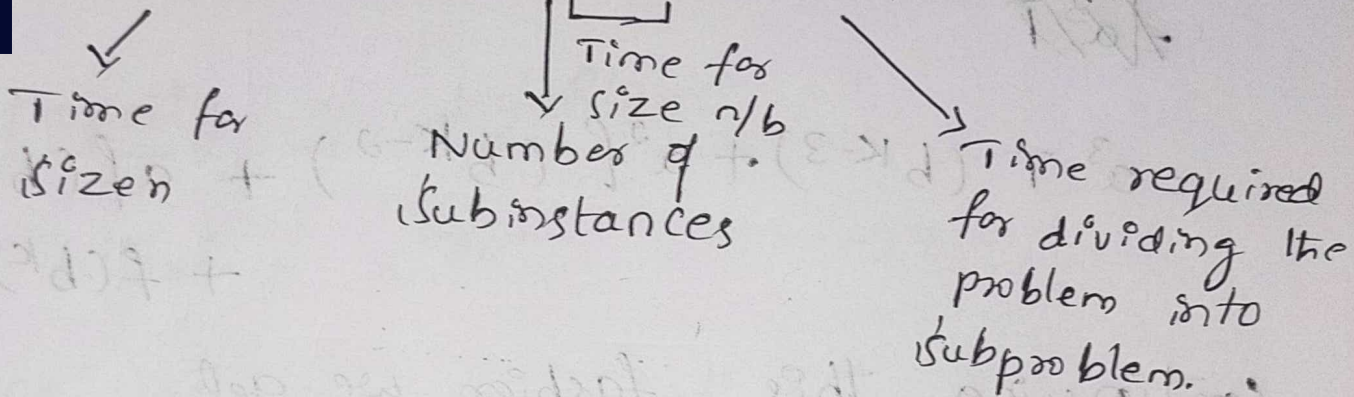 Time for
size n
Time for
size n/b
Number of .
Subinstances
Time required
for dividing the
problem into
subproblem. .